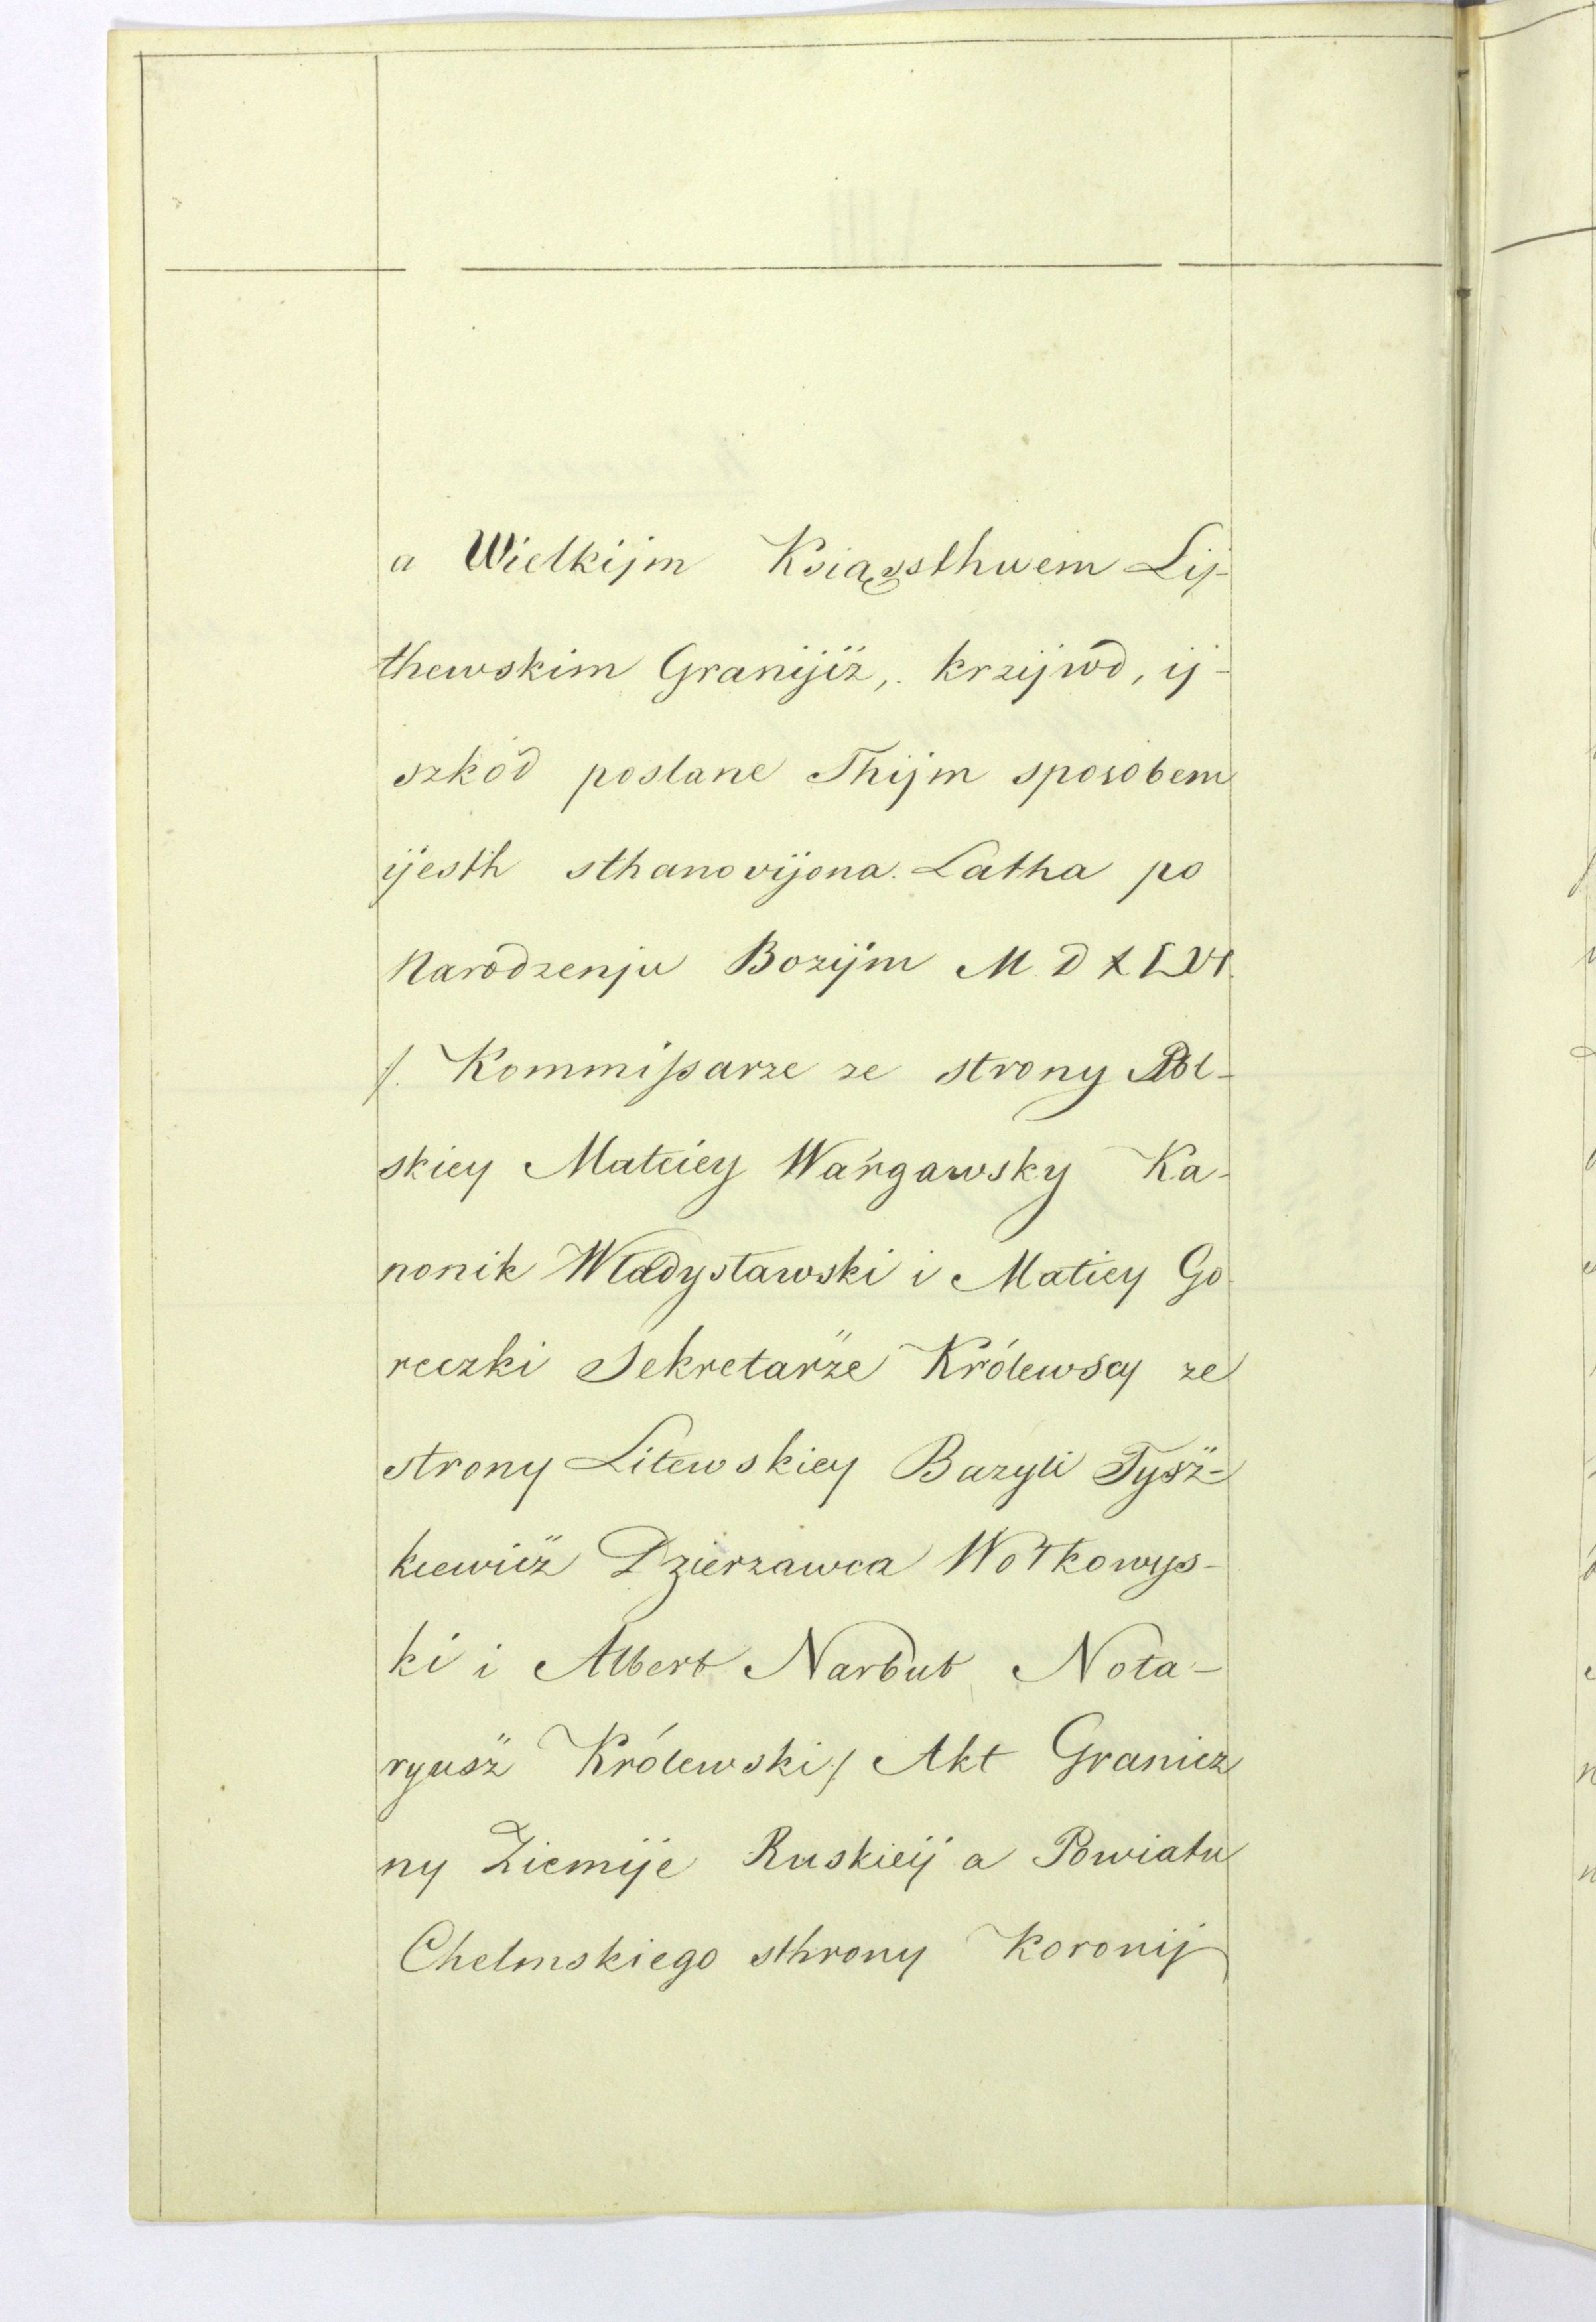 a Wielkijm Książsthwem Lij-
thewskim Granijïz, krzijwd, ij-
szkód poslane Thijm sposobem
ijesth sthanovijona. Latha po
Narodzenju Bozijm M D X L VI.
/. Kommissarze ze strony Pol-
skiey Mateiey Wargawsky Ka-
nonik Władysławski i Matiey Go-
reczki Sekretarze Królewscy ze
strony Litewskiey Bazyli Tysz-
kiewicz Dzierzawca Wołkowys-
ki i Albert Narbut Nota-
ryusz Królewski/. Akt Granicz
ny Ziemije Ruskieij a Powiatu
Chelmskiego sthrony Koronij